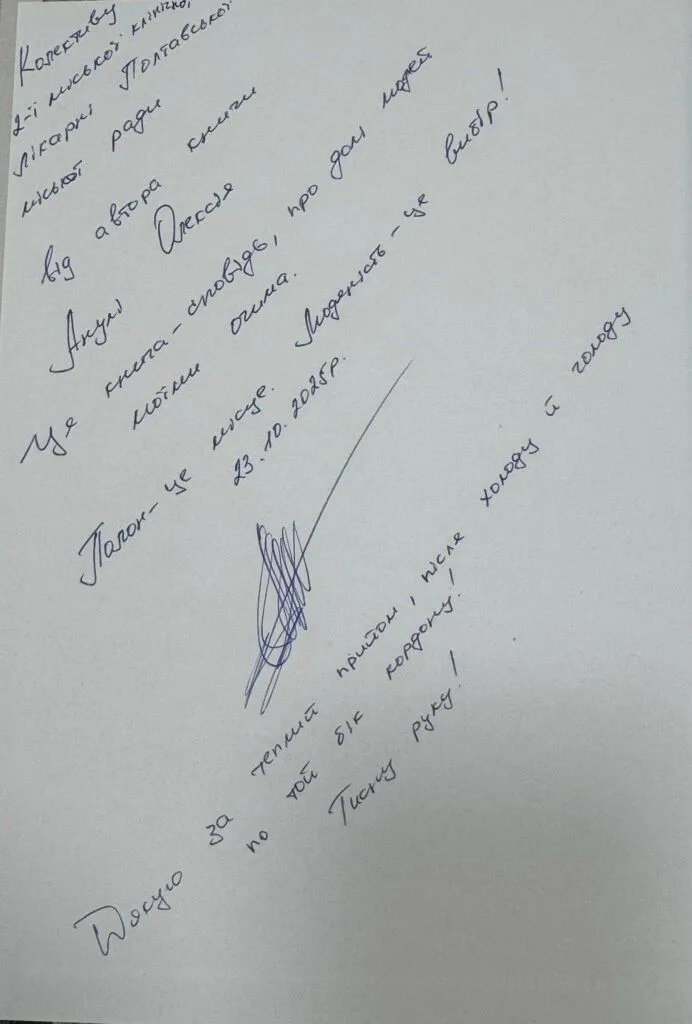 Колективу
2-ї міської клінічної
лікарні Полтавської
міської ради
від автора книги
Олексія
Ануля
Це книга-сповідь, про долі людей
моїми очима.
Полон-це місце. Людяність-це вибір!
23.10.2025р.
Дякую за теплий прийом, після холоду й голоду
по той бік кордону!
Тисну руку!